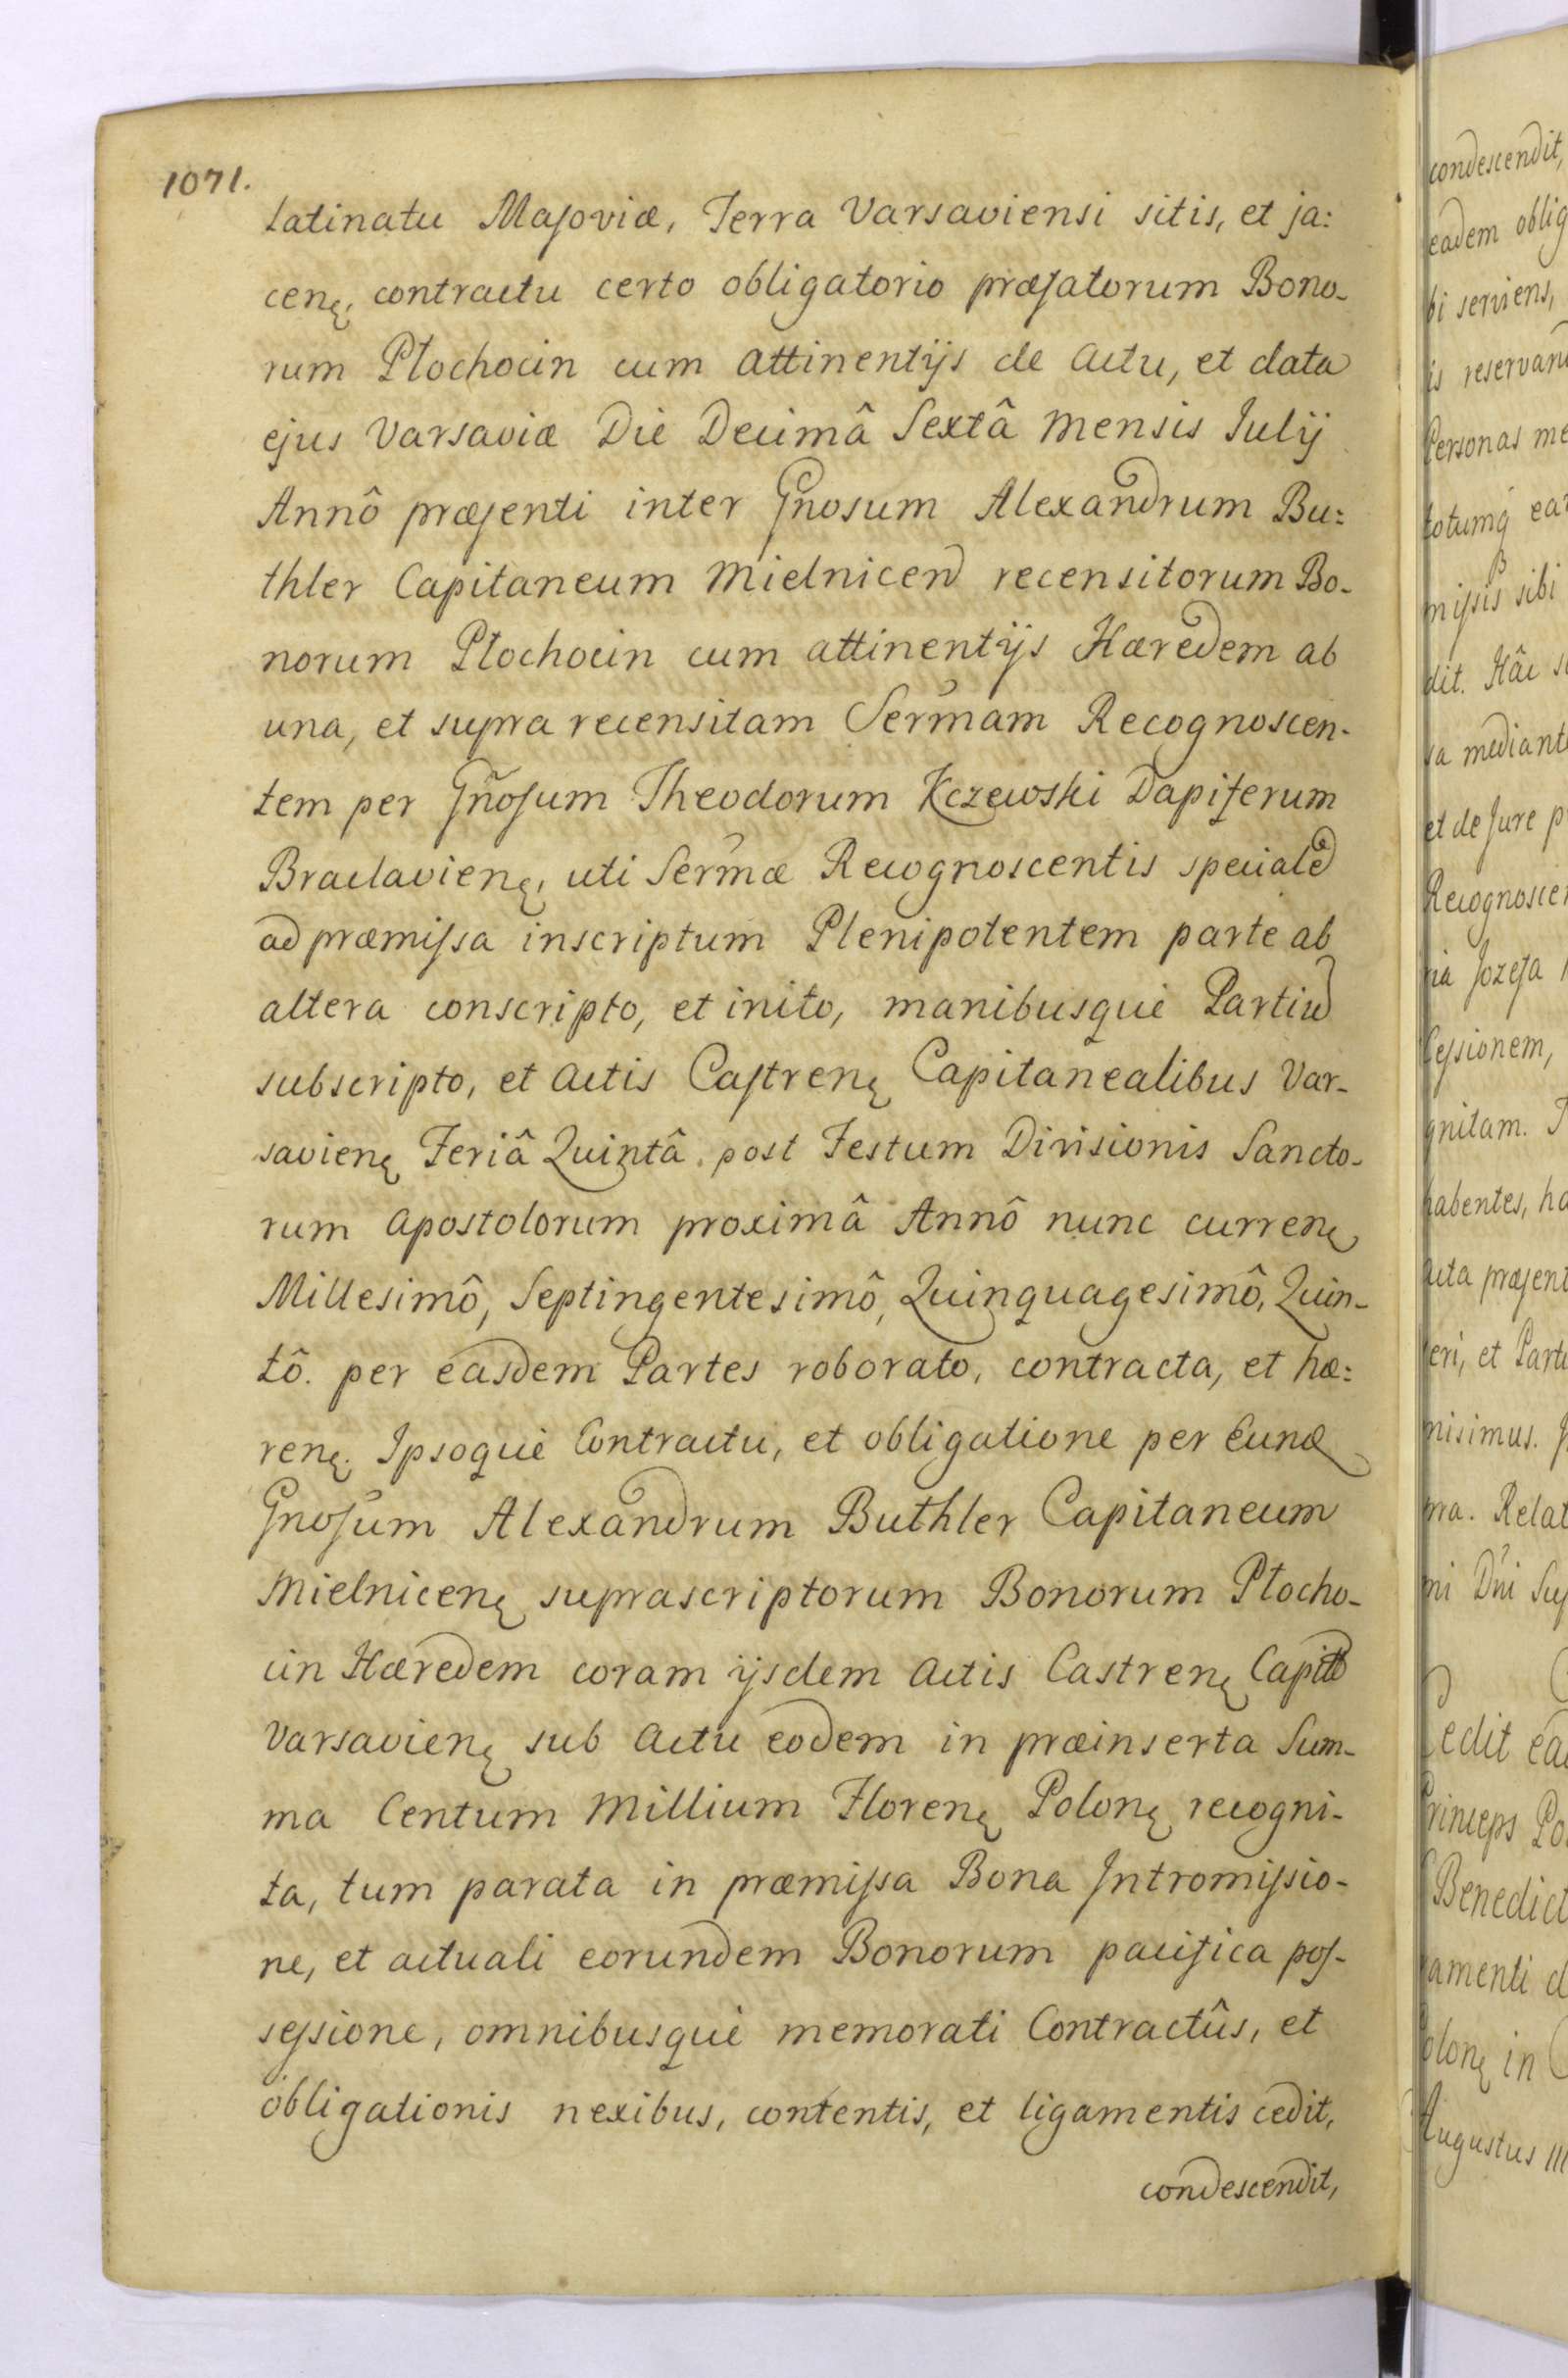 1071.
latinatu Masoviæ, Terra Varsaviensi sitis, et ja:
cenę, contractu certo obligatorio præfatorum Bono-
rum Płochocin cum attinentijs de actu, et data
ejus Varsaviæ Die Decimâ Sextâ Mensis Julij
Annô præsenti inter Gnosum Alexandrum Bu:
thler Capitaneum Mielnicen recensitorum Bo-
norum Płochocin cum attinentijs Hæredem ab
una, et supra recensitam Sermam Recognoscen-
tem per Gñosum Theodorum Kczewski Dapiferum
Bracłavienę, uti Sermæ Recognoscentis speciale
ad præmissa inscriptum Plenipotentem parte ab
altera conscripto, et inito, manibusquè Partiu
subscripto, et Actis Castrenę Capitanealibus Var-
savienę Feriâ Quintâ post Festum Divisionis Sancto-
rum Apostolorum proximâ Annô nunc currenę
Millesimô, Septingentesimô, Quinquagesimô, Quin-
tô. per easdem Partes roborato, contracta, et hæ:
renę. Ipsoquè Contractu, et obligatione per Eund
Gnosum Alexandrum Buthler Capitaneum
Mielnicenę suprascriptorum Bonorum Płocho-
cin Hæredem coram ijsdem Actis Castrenę Capit
Varsavienę sub Actu eodem in præinserta Sum-
ma Centum Millium Florenę Polonę recogni-
ta, tum parata in præmissa Bona Intromissio-
ne, et actuali eorundem Bonorum pacifica pos-
sessione, omnibusquè memorati Contractûs, et
obligationis nexibus, contentis, et ligamentis cedit,
condescendit,
condescendit,
eadem oblig
bi serviens,
is reservan
Personas me
totumq ea
missis sibi
dit. Hâc s
sa mediant
et de Jure p
Recognoscen
ria Jozefa
Cessionem,
gnitam. J
habentes, ha
Acta præsent
eri, et Parti
misimus. J
pra. Relat
ni Dni Sup
Cedit ea
Princeps Po
Benedict
ramenti d
olonę in
Augustus III